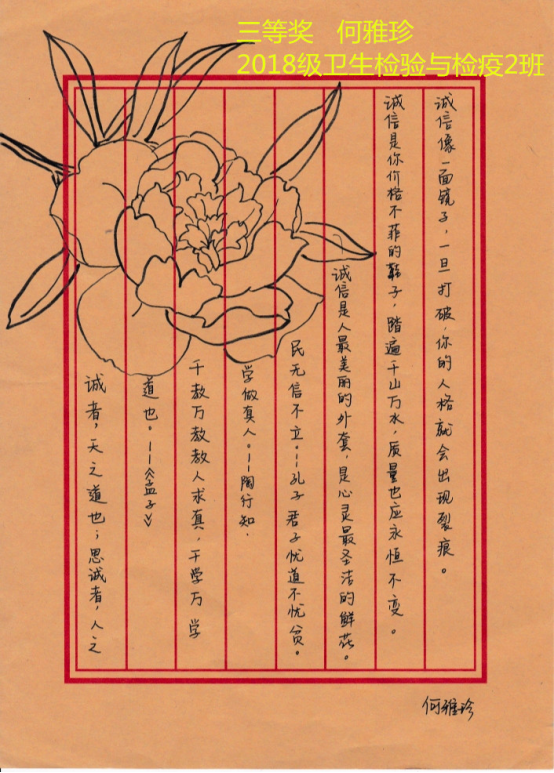 三等奖 何雅珍
2018级卫生检验与检疫2班
诚者，天之道也；思诚者，人之
道也。--《孟子》
千教万教教人求真，千学万学
学做真人。--陶行知.
民无信不立。--孔子 君子忧道不忧贫。
诚信是人最美丽的外套，是心灵最圣洁的鲜花。
诚信是你价格不菲的鞋子，踏遍千山万水，质量也应永恒不变。
诚信像一面镜子，一旦打破，你的人格就会出现裂痕。
何雅珍